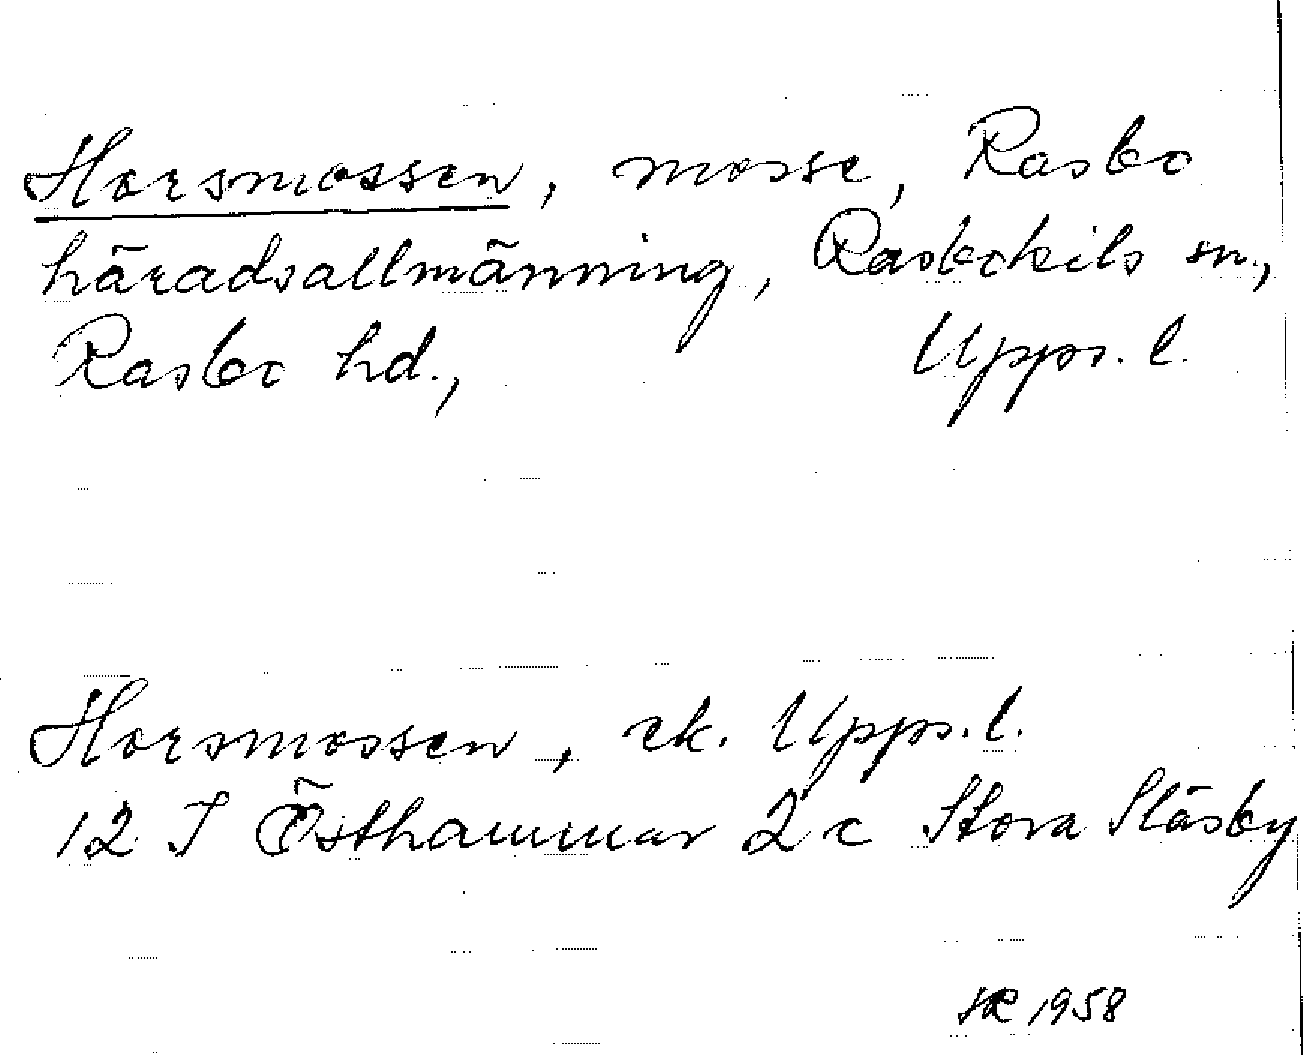 Horsmossen, mosse, Rasbo
häradsallmänning, Rasbokils sn.,
Rasbo hd., Upps. l.
Horsmossen, ek. Upps. l.
12 I Östhammar 2 c Stora Stäsby
HR 1958